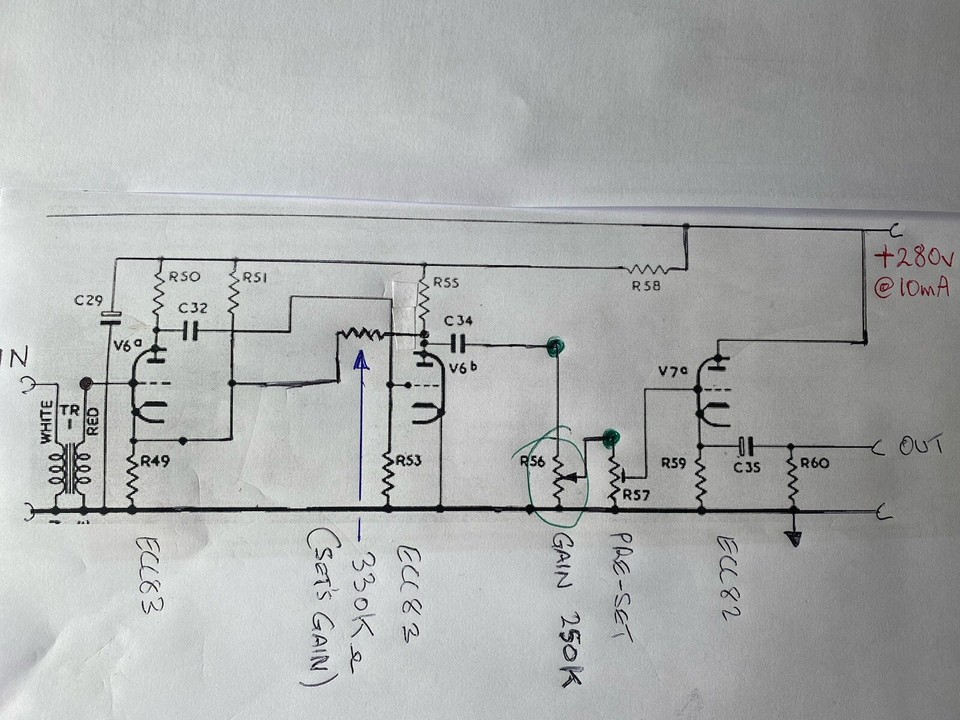 R50
R51
R55
R58
C
+280v
@10mA
C29
C32
C34
V6a
V6b
V7a
IN
WHITE
TR
RED
R49
R53
R56
R57
R59
C35
R60
OUT
ECC83
330K Ω
(SET'S GAIN)
ECC83
GAIN 250K
PRE-SET
ECC82